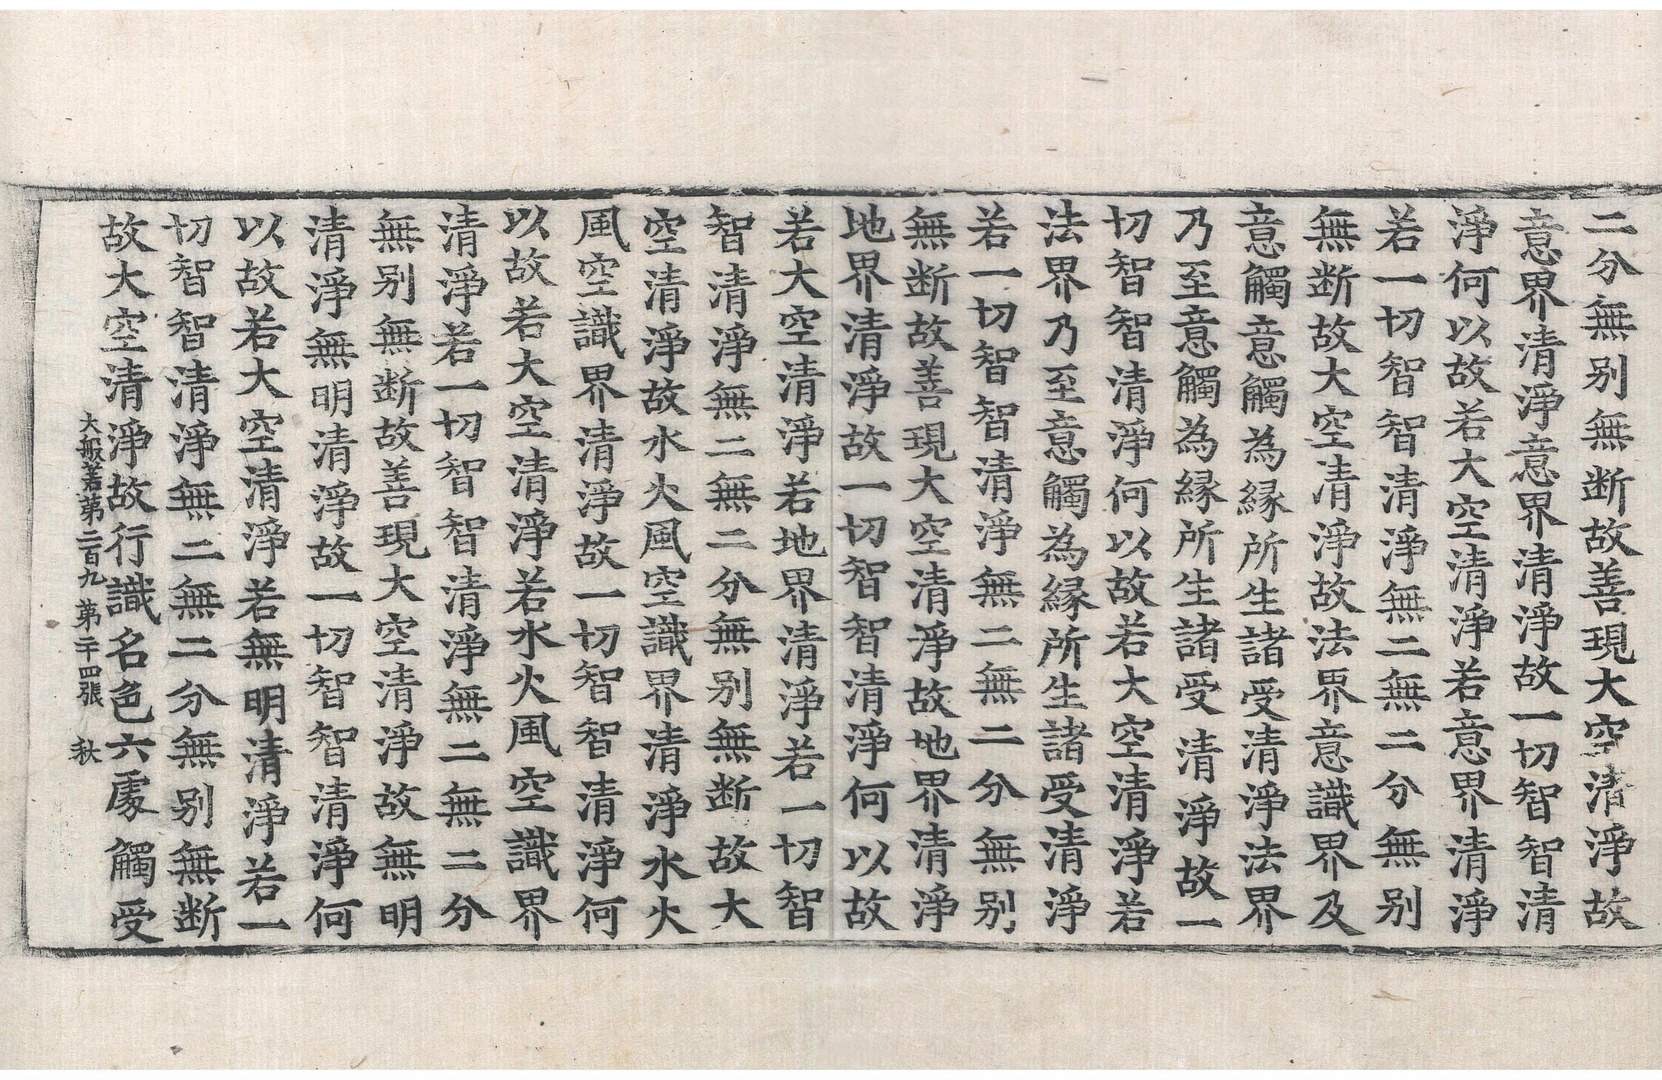 二分無別無断故善現大空清淨故
意界清淨意界清淨故一切智智清
淨何以故若大空清淨若意界清淨
若一切智智清淨無二無二分無別
無断故大空清淨故法界意識界及
意觸意觸為縁所生諸受清淨法界
乃至意觸為縁所生諸受清淨故一
切智智清淨何以故若大空清淨若
法界乃至意觸為縁所生諸受清淨
若一切智智清淨無二無二分無別
無断故善現大空清淨故地界清淨
地界清淨故一切智智清淨何以故
若大空清淨若地界清淨若一切智
智清淨無二無二分無別無断故大
空清淨故水火風空識界清淨水火
風空識界清淨故一切智智清淨何
以故若大空清淨若水火風空識界
清淨若一切智智清淨無二無二分
無別無断故善現大空清淨故無明
清淨無明清淨故一切智智清淨何
以故若大空清淨若無明清淨若一
切智智清淨無二無二分無別無断
故大空清淨故行識名色六處觸受
大般若第二百九 第二十四張 秋